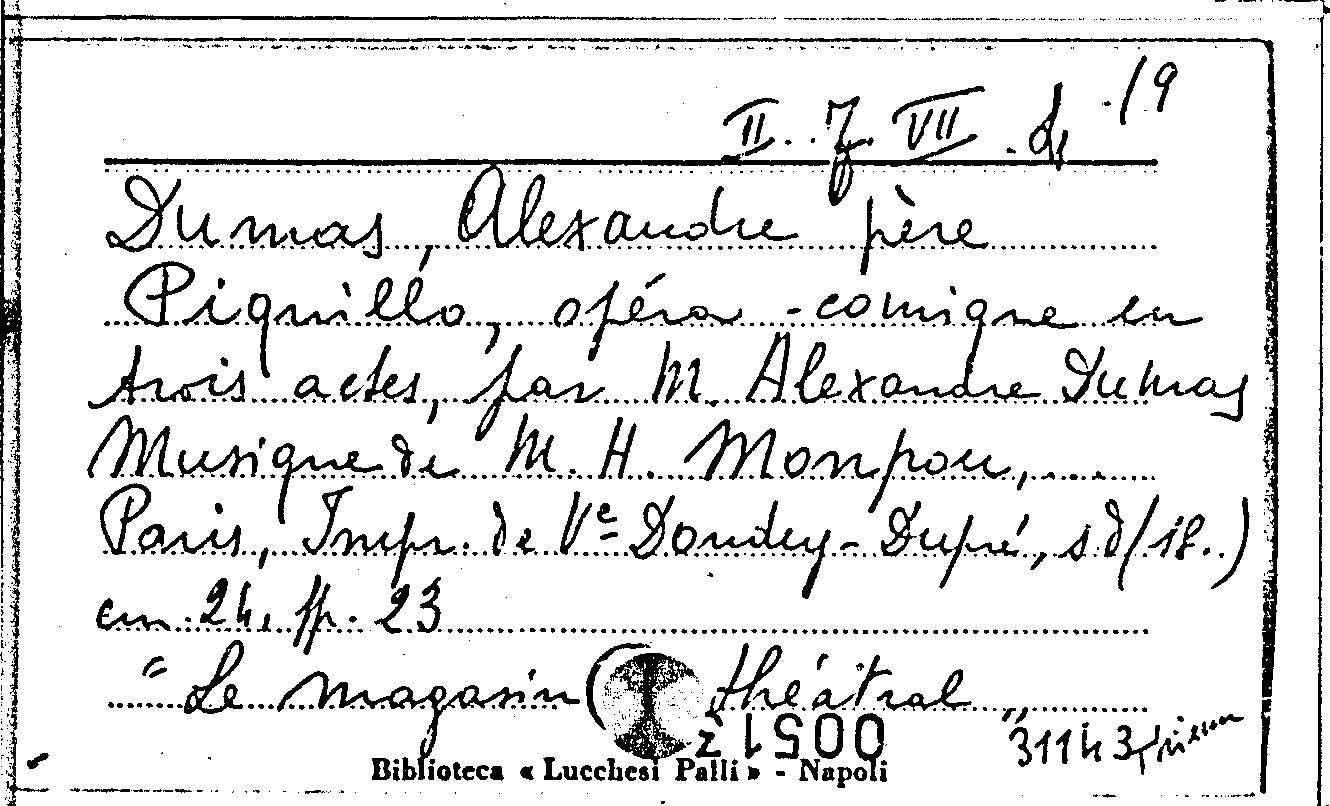 II. . VII . /9
Dumas, Alexandre père
Piquillo, opéra-comique en
trois actes, par M. Alexandre Dumas
Musique de M. H. Monpou, ....
Paris, Impr. de Ve Dondey-Dupré, s d (18..)
cm. 24. pp. 23
"Le magasin théâtral"
00512
31143
Biblioteca « Lucchesi Palli » - Napoli